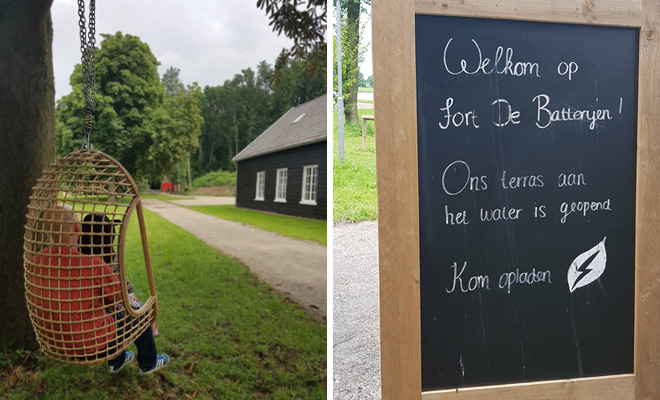 Welkom op
Fort De Batterijen!
Ons terras aan
het water is geopend
Kom opladen